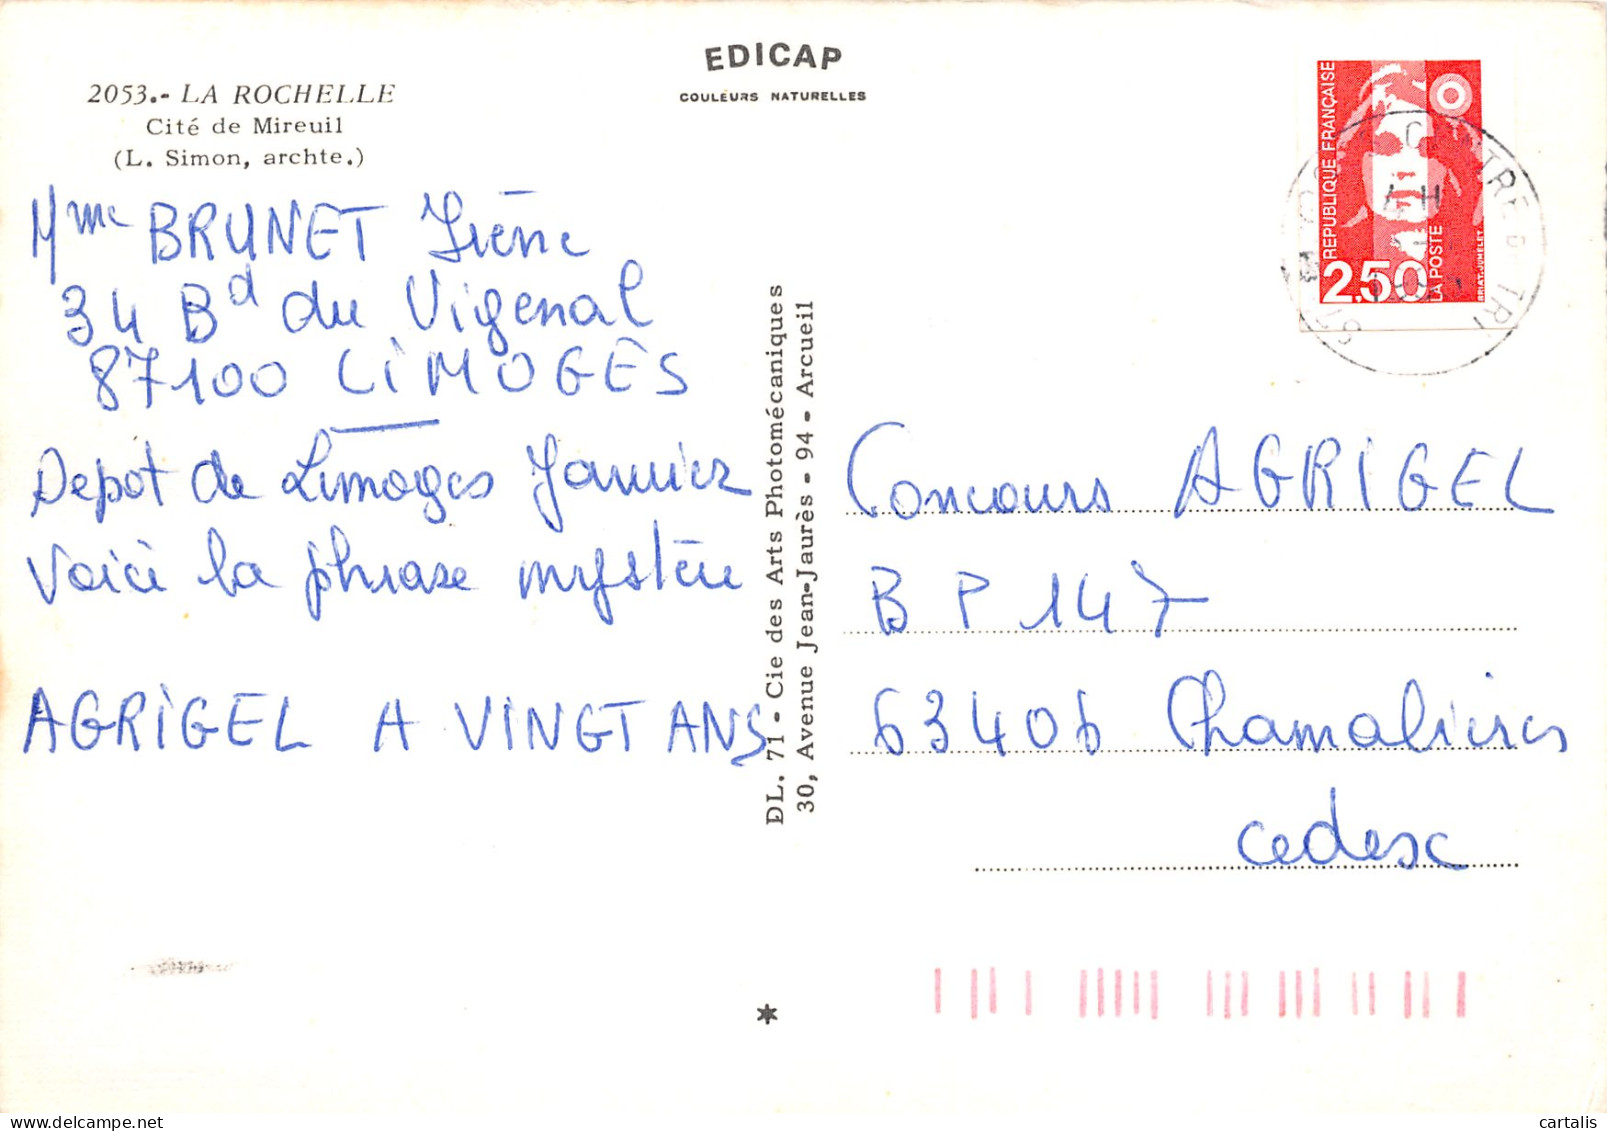 EDICAP
COULEURS NATURELLES
2053.- LA ROCHELLE
Cité de Mireuil
(L. Simon, archte.)
Mme BRUNET Irène
34 Bd du Vigenal
87100 LIMOGES
Depot de Limoges Janvier
Voici la phrase mystère
AGRIGEL A VINGT ANS
DL. 71 - Cie des Arts Photomécaniques
30, Avenue Jean-Jaurès - 94 - Arcueil
REPUBLIQUE FRANÇAISE
2,50
LA POSTE
BRIAT-JUMELET
CENTRE DE TRI
Concours AGRIGEL
BP 147
63406 Chamalieres
cedesc
cartalis